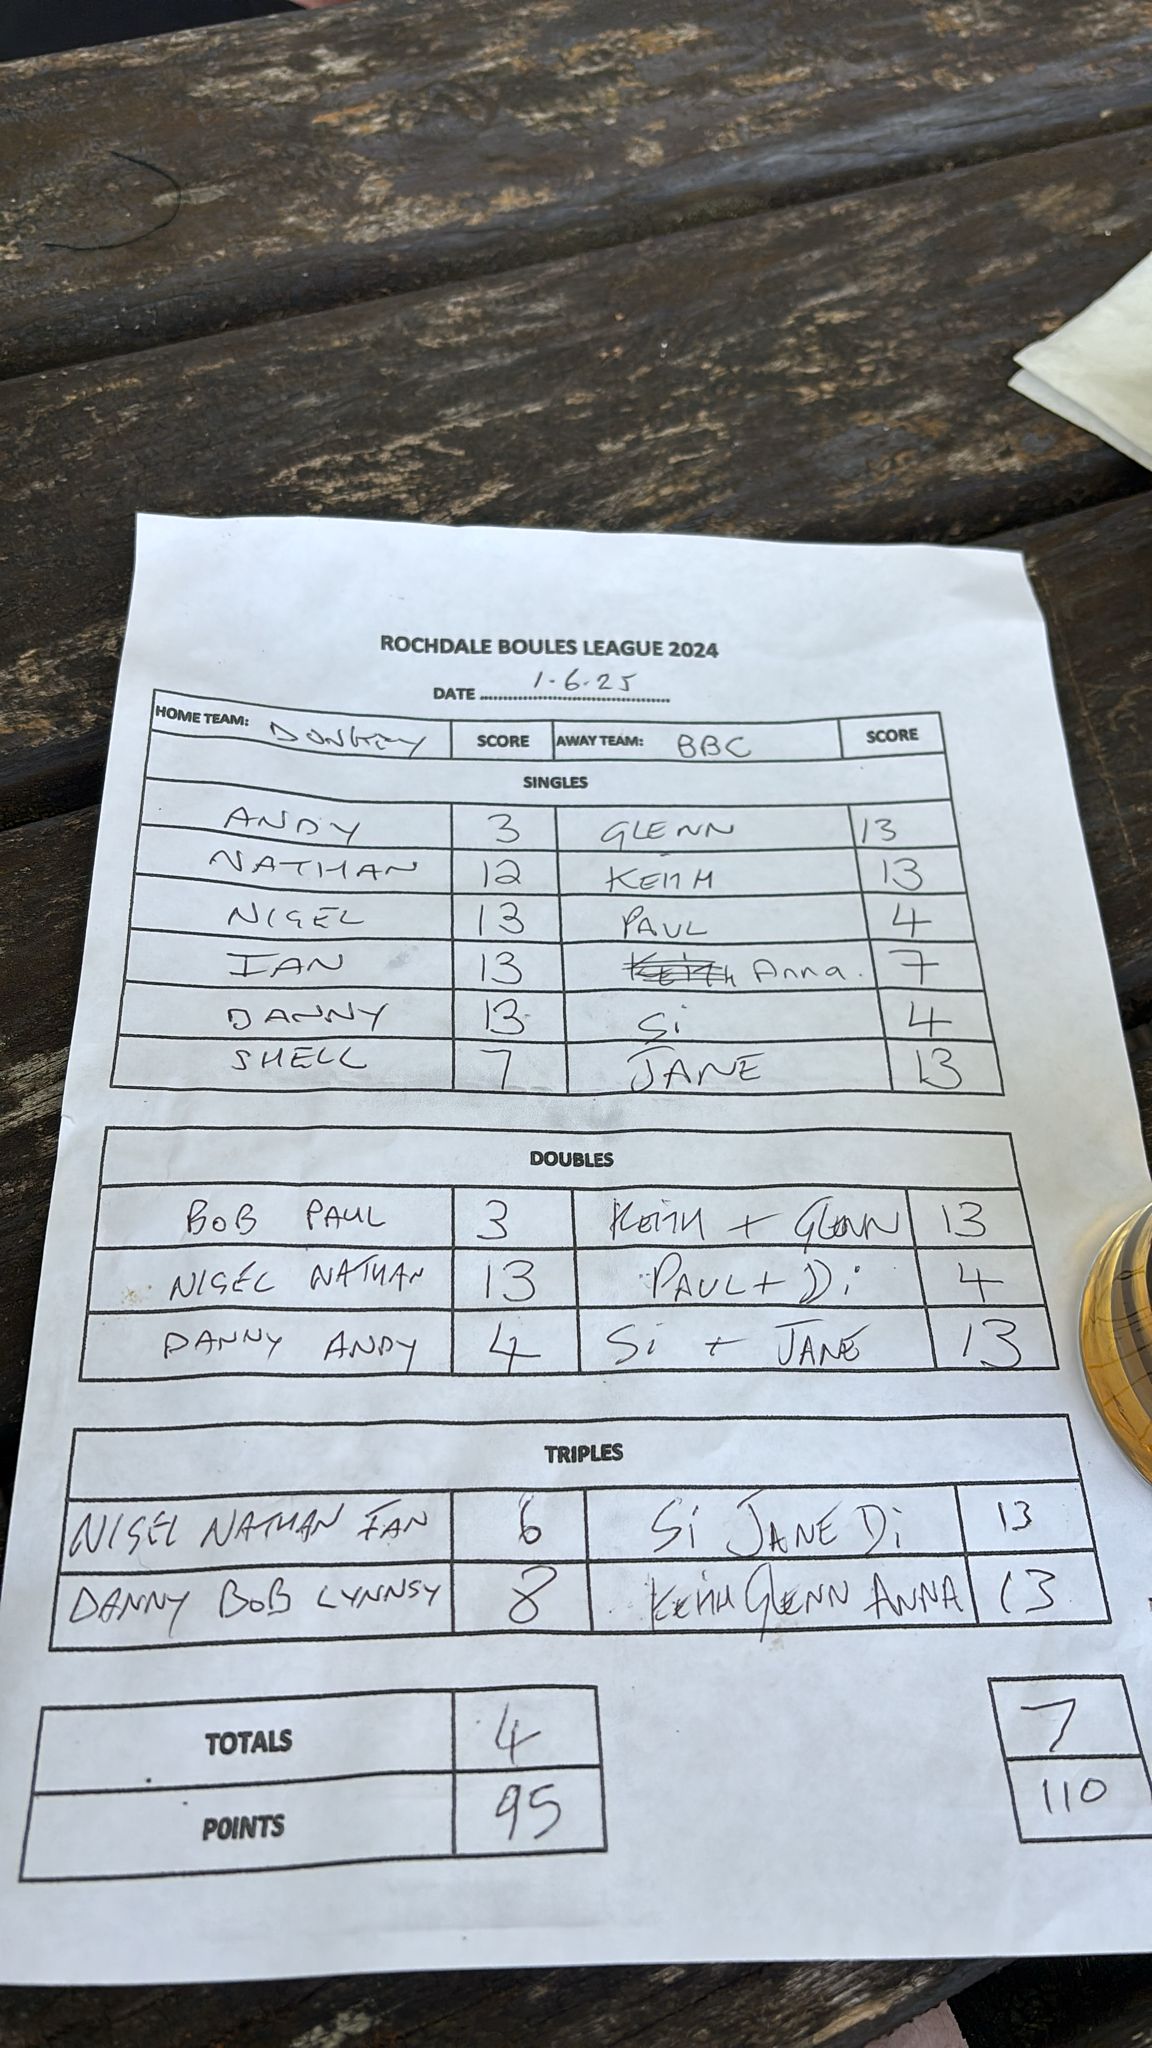 ROCHDALE BOULES LEAGUE 2024
DATE 1.6.25
HOME TEAM: DONKEY SCORE AWAY TEAM: BBC SCORE
SINGLES
ANDY 3 GLENN 13
NATHAN 12 KEITH 13
NIGEL 13 PAUL 4
IAN 13 Anna. 7
DANNY 13 Si 4
SHELL 7 JANE 13
DOUBLES
BOB PAUL 3 KEITH + GLENN 13
NIGEL NATHAN 13 PAUL + Di 4
DANNY ANDY 4 Si + JANE 13
TRIPLES
NIGEL NATHAN IAN 6 Si JANE Di 13
DANNY BOB LYNNSY 8 KEITH GLENN ANNA 13
TOTALS 4 7
POINTS 95 110